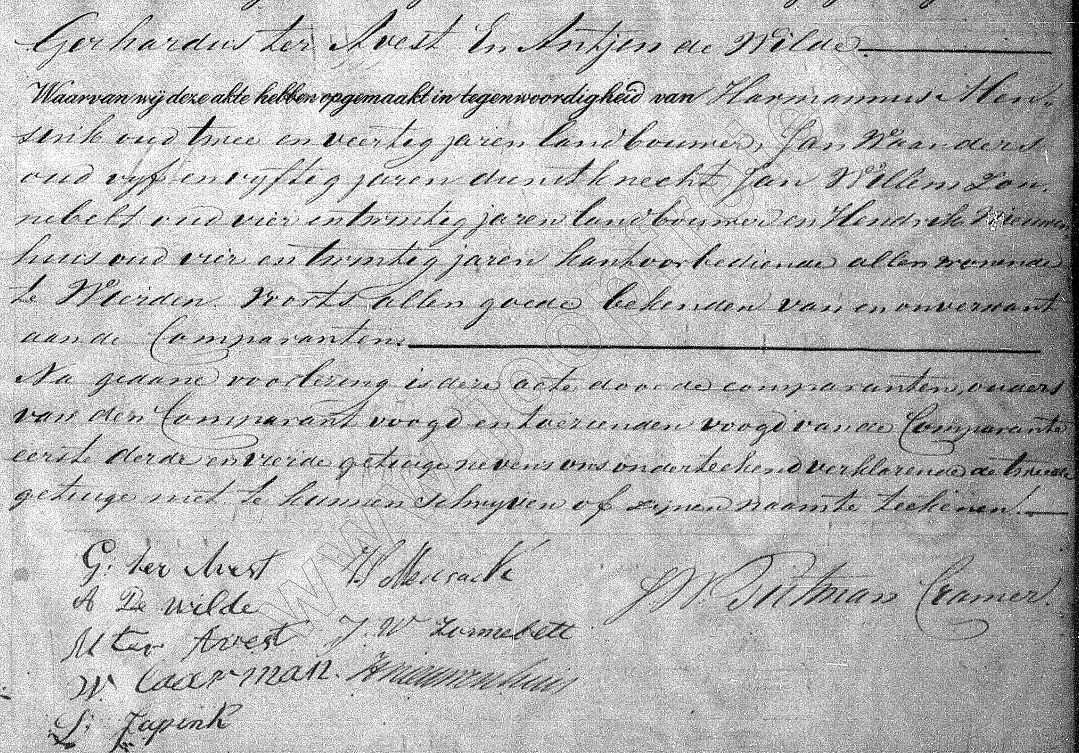 Gerhardus ter Avest En Antjen de Wilde
Waarvan wij deze akte hebben opgemaakt in tegenwoordigheid van Harmannus Men-
serik oud twee en veertig jaren landbouwer, Jan Waanders
oud vyf en vyftig jaren dienstknecht Jan Willem Zon-
nebelt oud vier en twintig jaren landbouwer en Hendrik Nieuwen
huis oud vier en twintig jaren kantoorbediende allen wonende
te Wierden. Voorts allen goede bekenden van en onverwant
aan de Comparanten.
Na gedane voorlezing is deze acte door de comparanten, ouders
van den Comparant voogd en toezienden voogd van de Comparante
eerste derde en vierde getuige nevens ons onderteekend verklarende de tweede
getuige niet te kunnen schryven of zynen naam te teekenen!
G: ter Avest
A De Wilde
M ter Avest J. W Zonnebelt
W Coerman. HNieuwenhuis
Japink
Pitman Cramer.